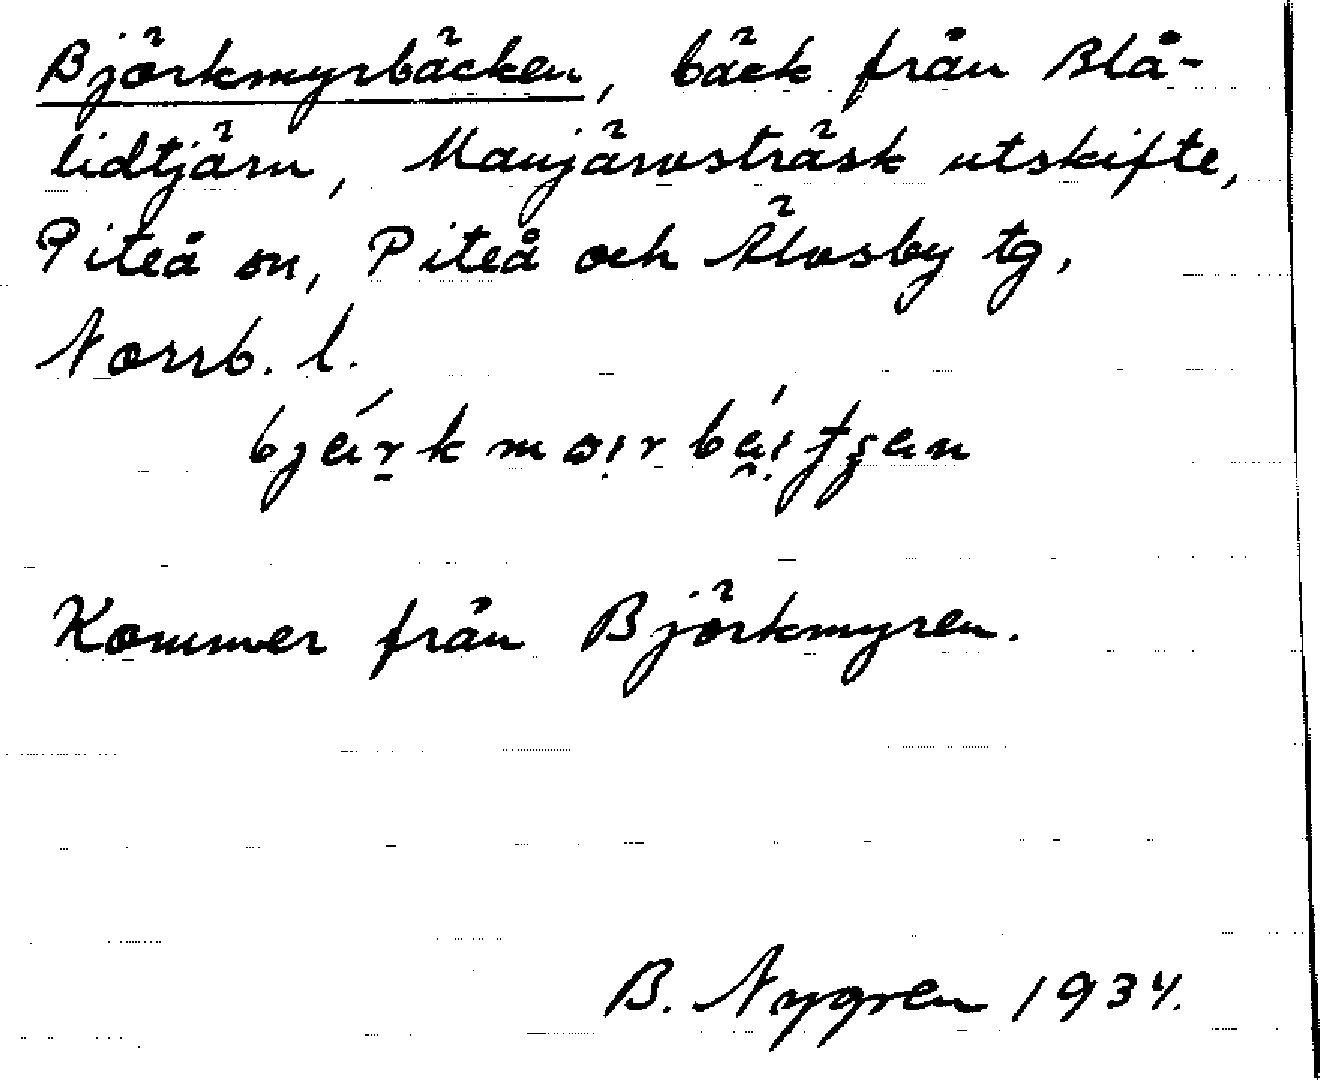 Björkmyrbäcken, bäck från Blå-
lidtjärn, Manjärvsträsk utskifte,
Piteå sn, Piteå och Älvsby tg,
Norrb. l.
Kommer från Björkmyren.
B. Nygren 1934.